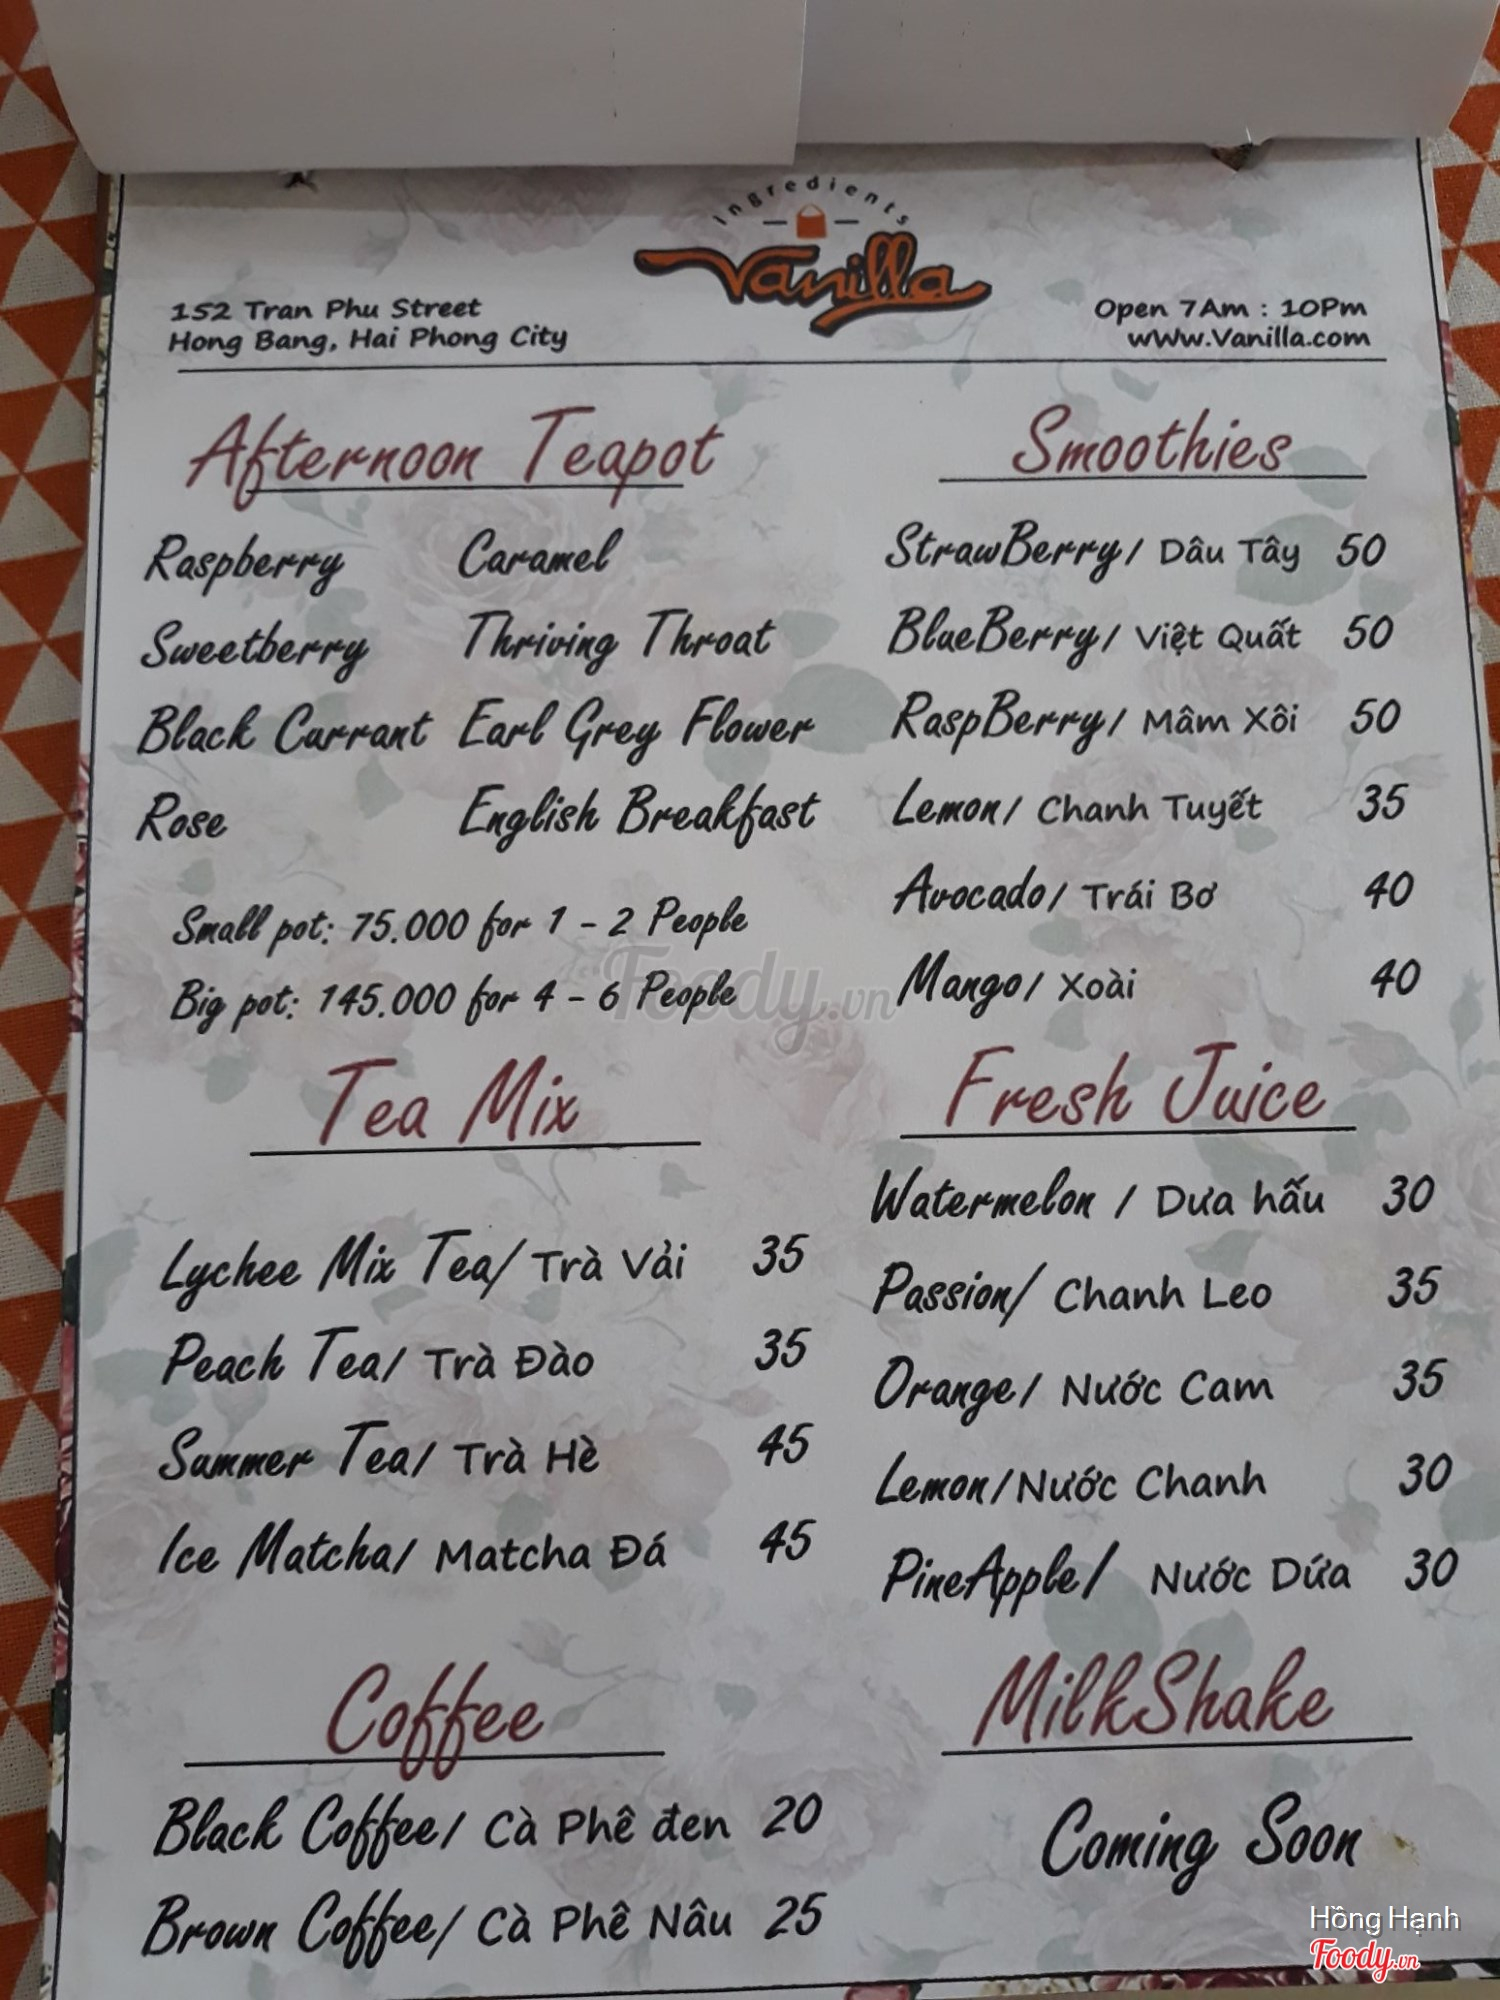 Ingredients
Vanilla
152 Tran Phu Street
Hong Bang, Hai Phong City
Open 7Am : 10Pm
www.Vanilla.com
Afternoon Teapot
Raspberry Caramel
Sweetberry Thriving Throat
Black Currant Earl Grey Flower
Rose English Breakfast
Small pot: 75.000 for 1 - 2 People
Big pot: 145.000 for 4 - 6 People
Tea Mix
Lychee Mix Tea/ Trà Vải 35
Peach Tea/ Trà Đào 35
Summer Tea/ Trà Hè 45
Ice Matcha/ Matcha Đá 45
Coffee
Black Coffee/ Cà Phê đen 20
Brown Coffee/ Cà Phê Nâu 25
Smoothies
StrawBerry/ Dâu Tây 50
BlueBerry/ Việt Quất 50
RaspBerry/ Mâm Xôi 50
Lemon/ Chanh Tuyết 35
Avocado/ Trái Bơ 40
Mango/ Xoài 40
Fresh Juice
Watermelon / Dưa hấu 30
Passion/ Chanh Leo 35
Orange/ Nước Cam 35
Lemon/Nước Chanh 30
PineApple/ Nước Dứa 30
MilkShake
Coming Soon
Foody.vn
Hồng Hạnh
Foody.vn